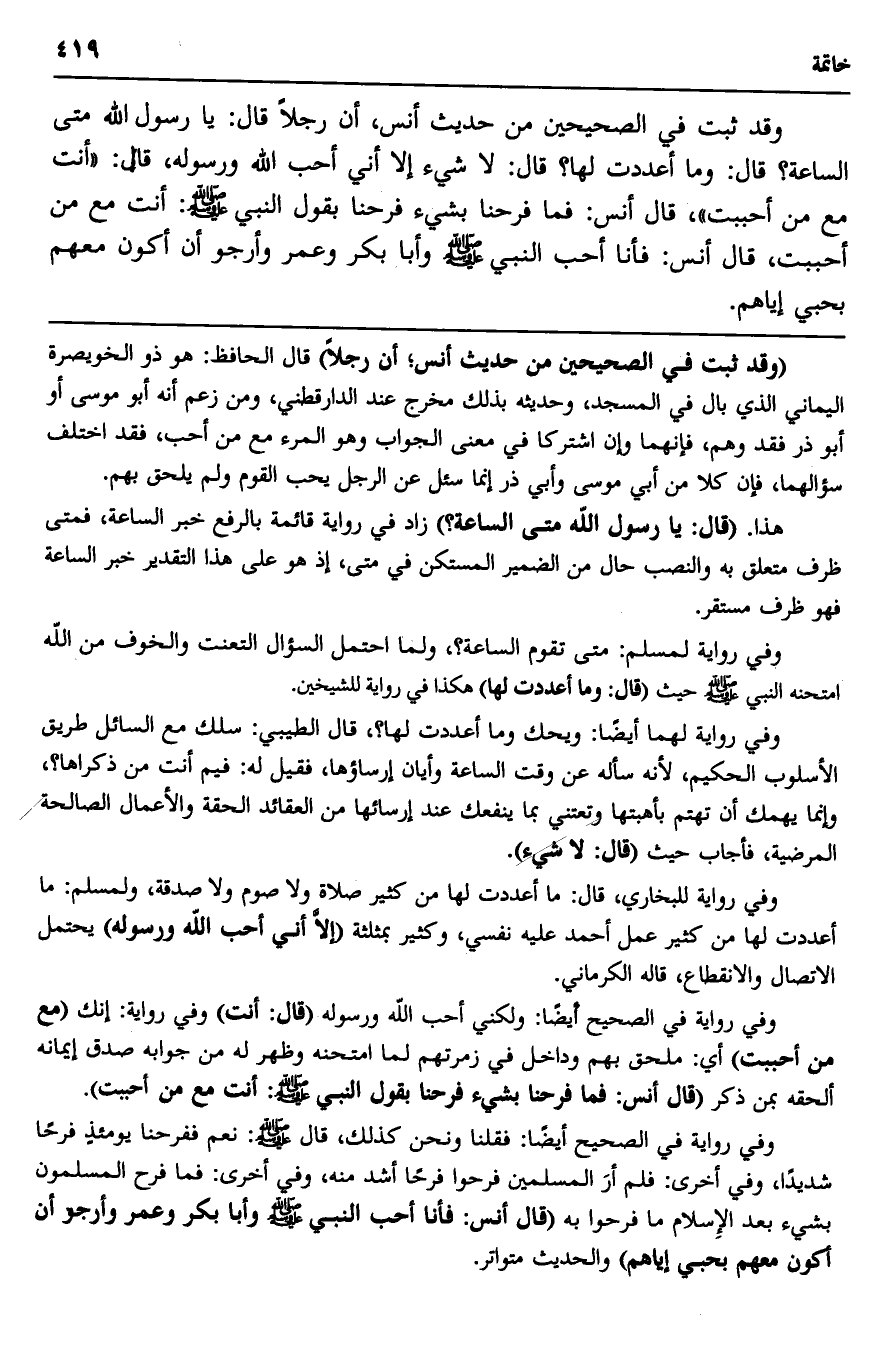 خاتمة ٤١٩
وقد ثبت في الصحيحين من حديث أنس، أن رجلاً قال: يا رسول الله متى
الساعة؟ قال: وما أعددت لها؟ قال: لا شيء إلا أني أحب الله ورسوله، قال: «أنت
مع من أحببت»، قال أنس: فما فرحنا بشيء فرحنا بقول النبي ﷺ: أنت مع من
أحببت، قال أنس: فأنا أحب النبي ﷺ وأبا بكر وعمر وأرجو أن أكون معهم
بحبي إياهم.
(وقد ثبت في الصحيحين من حديث أنس؛ أن رجلاً) قال الحافظ: هو ذو الخويصرة
اليماني الذي بال في المسجد، وحديثه بذلك مخرج عند الدارقطني، ومن زعم أنه أبو موسى أو
أبو ذر فقد وهم، فإنهما وإن اشتركا في معنى الجواب وهو المرء مع من أحب، فقد اختلف
سؤالهما، فإن كلا من أبي موسى وأبي ذر إنما سئل عن الرجل يحب القوم ولم يلحق بهم.
هذا. (قال: يا رسول الله متى الساعة؟) زاد في رواية قائمة بالرفع خبر الساعة، فمتى
ظرف متعلق به والنصب حال من الضمير المستكن في متى، إذ هو على هذا التقدير خبر الساعة
فهو ظرف مستقر.
وفي رواية لمسلم: متى تقوم الساعة؟، ولما احتمل السؤال التعنت والخوف من الله
امتحنه النبي ﷺ حيث (قال: وما أعددت لها) هكذا في رواية للشيخين.
وفي رواية لهما أيضًا: ويحك وما أعددت لها؟، قال الطيبي: سلك مع السائل طريق
الأسلوب الحكيم، لأنه سأله عن وقت الساعة وأيان إرساؤها، فقيل له: فيم أنت من ذكراها؟،
وإنما يهمك أن تهتم بأهبتها وتعتني بما ينفعك عند إرسائها من العقائد الحقة والأعمال الصالحة
المرضية، فأجاب حيث (قال: لا شيء).
وفي رواية للبخاري، قال: ما أعددت لها من كثير صلاة ولا صوم ولا صدقة، ولمسلم: ما
أعددت لها من كثير عمل أحمد عليه نفسي، وكثير بمثلثة (إلاَّ أني أحب الله ورسوله) يحتمل
الاتصال والانقطاع، قاله الكرماني.
وفي رواية في الصحيح أيضًا: ولكني أحب الله ورسوله (قال: أنت) وفي رواية: إنك (مع
من أحببت) أي: ملحق بهم وداخل في زمرتهم لما امتحنه وظهر له من جوابه صدق إيمانه
ألحقه بمن ذكر (قال أنس: فما فرحنا بشيء فرحنا بقول النبي ﷺ: أنت مع من أحببت).
وفي رواية في الصحيح أيضًا: فقلنا ونحن كذلك، قال ﷺ: نعم ففرحنا يومئذٍ فرحًا
شديدًا، وفي أخرى: فلم أرَ المسلمين فرحوا فرحًا أشد منه، وفي أخرى: فما فرح المسلمون
بشيء بعد الإسلام ما فرحوا به (قال أنس: فأنا أحب النبي ﷺ وأبا بكر وعمر وأرجو أن
أكون معهم بحبي إياهم) والحديث متواتر.